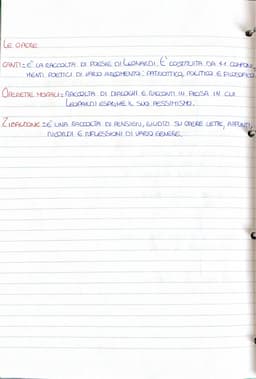 LE OPERE
CANTI: È LA RACCOLTA DI POESIE DI LEOPARDI. È COSTITUITA DA 41 COMPONI-
MENTI POETICI DI VARIO ARGOMENTO: PATRIOTTICA, POLITICA E FILOSOFICA
OPERETTE MORALI: RACCOLTA DI DIALOGHI E RACCONTI IN PROSA IN CUI
LEOPARDI ESPRIME IL SUO PESSIMISMO.
ZIBALDONE: È UNA RACCOLTA DI PENSIERI, GIUDIZI SU OPERE LETTE, APPUNTI,
RICORDI E RIFLESSIONI DI VARIO GENERE.